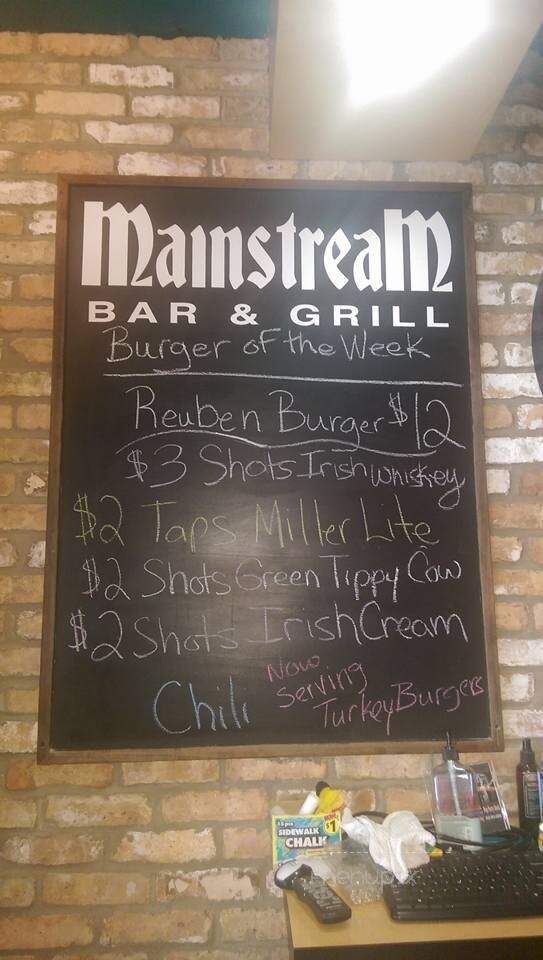 MainstreaM
BAR & GRILL
Burger of the Week
Reuben Burger $12
$3 Shots Irish whiskey
$2 Taps Miller Lite
$2 Shots Green Tippy Cow
$2 Shots Irish Cream
Chili
Now
Serving
Turkey Burgers
SIDEWALK
CHALK
$1